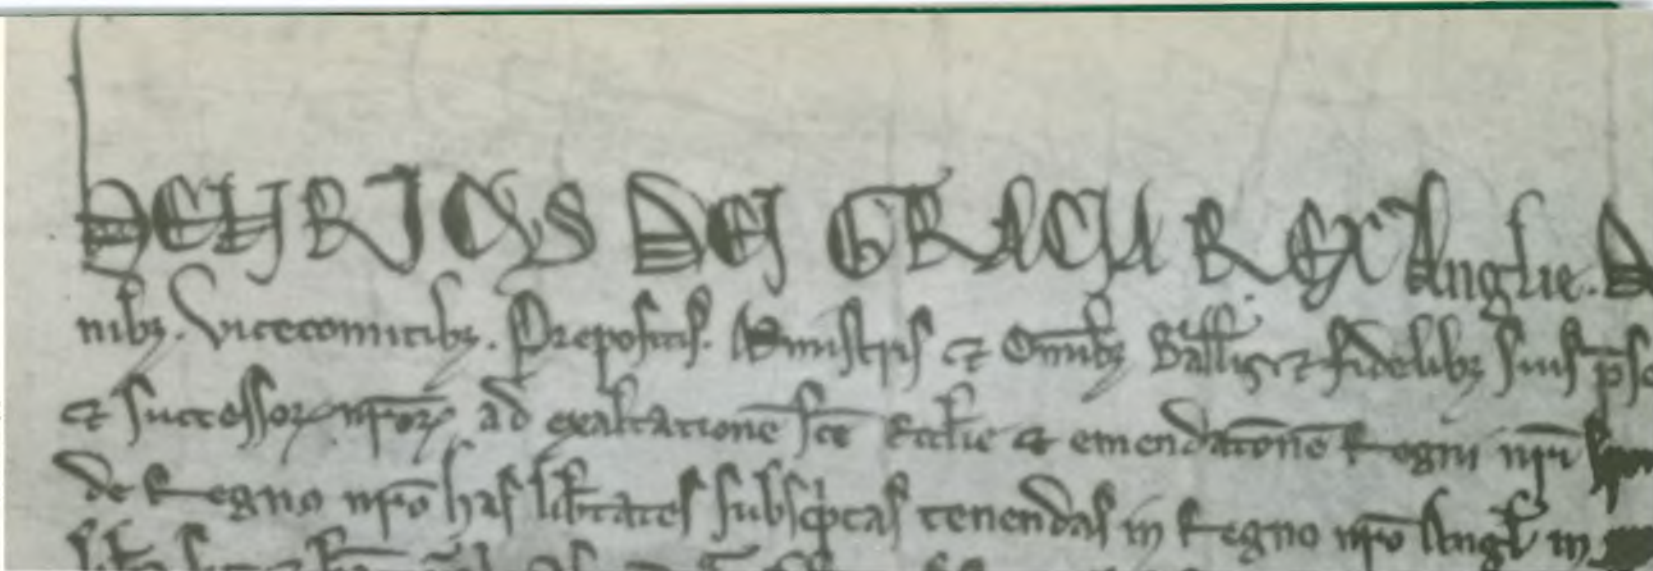 HENRICUS DEI GRACIA REX Anglie. D
nibz. Vicecomitibz. Prepositis. Ministris et Omibz Ballis et fidelibz suis pse
et successoz nroz ad exaltatione sce Ecclie et emendatone Regni nri
de Regno nro has libtates subsciptas tenendas in Regno nro Angl in